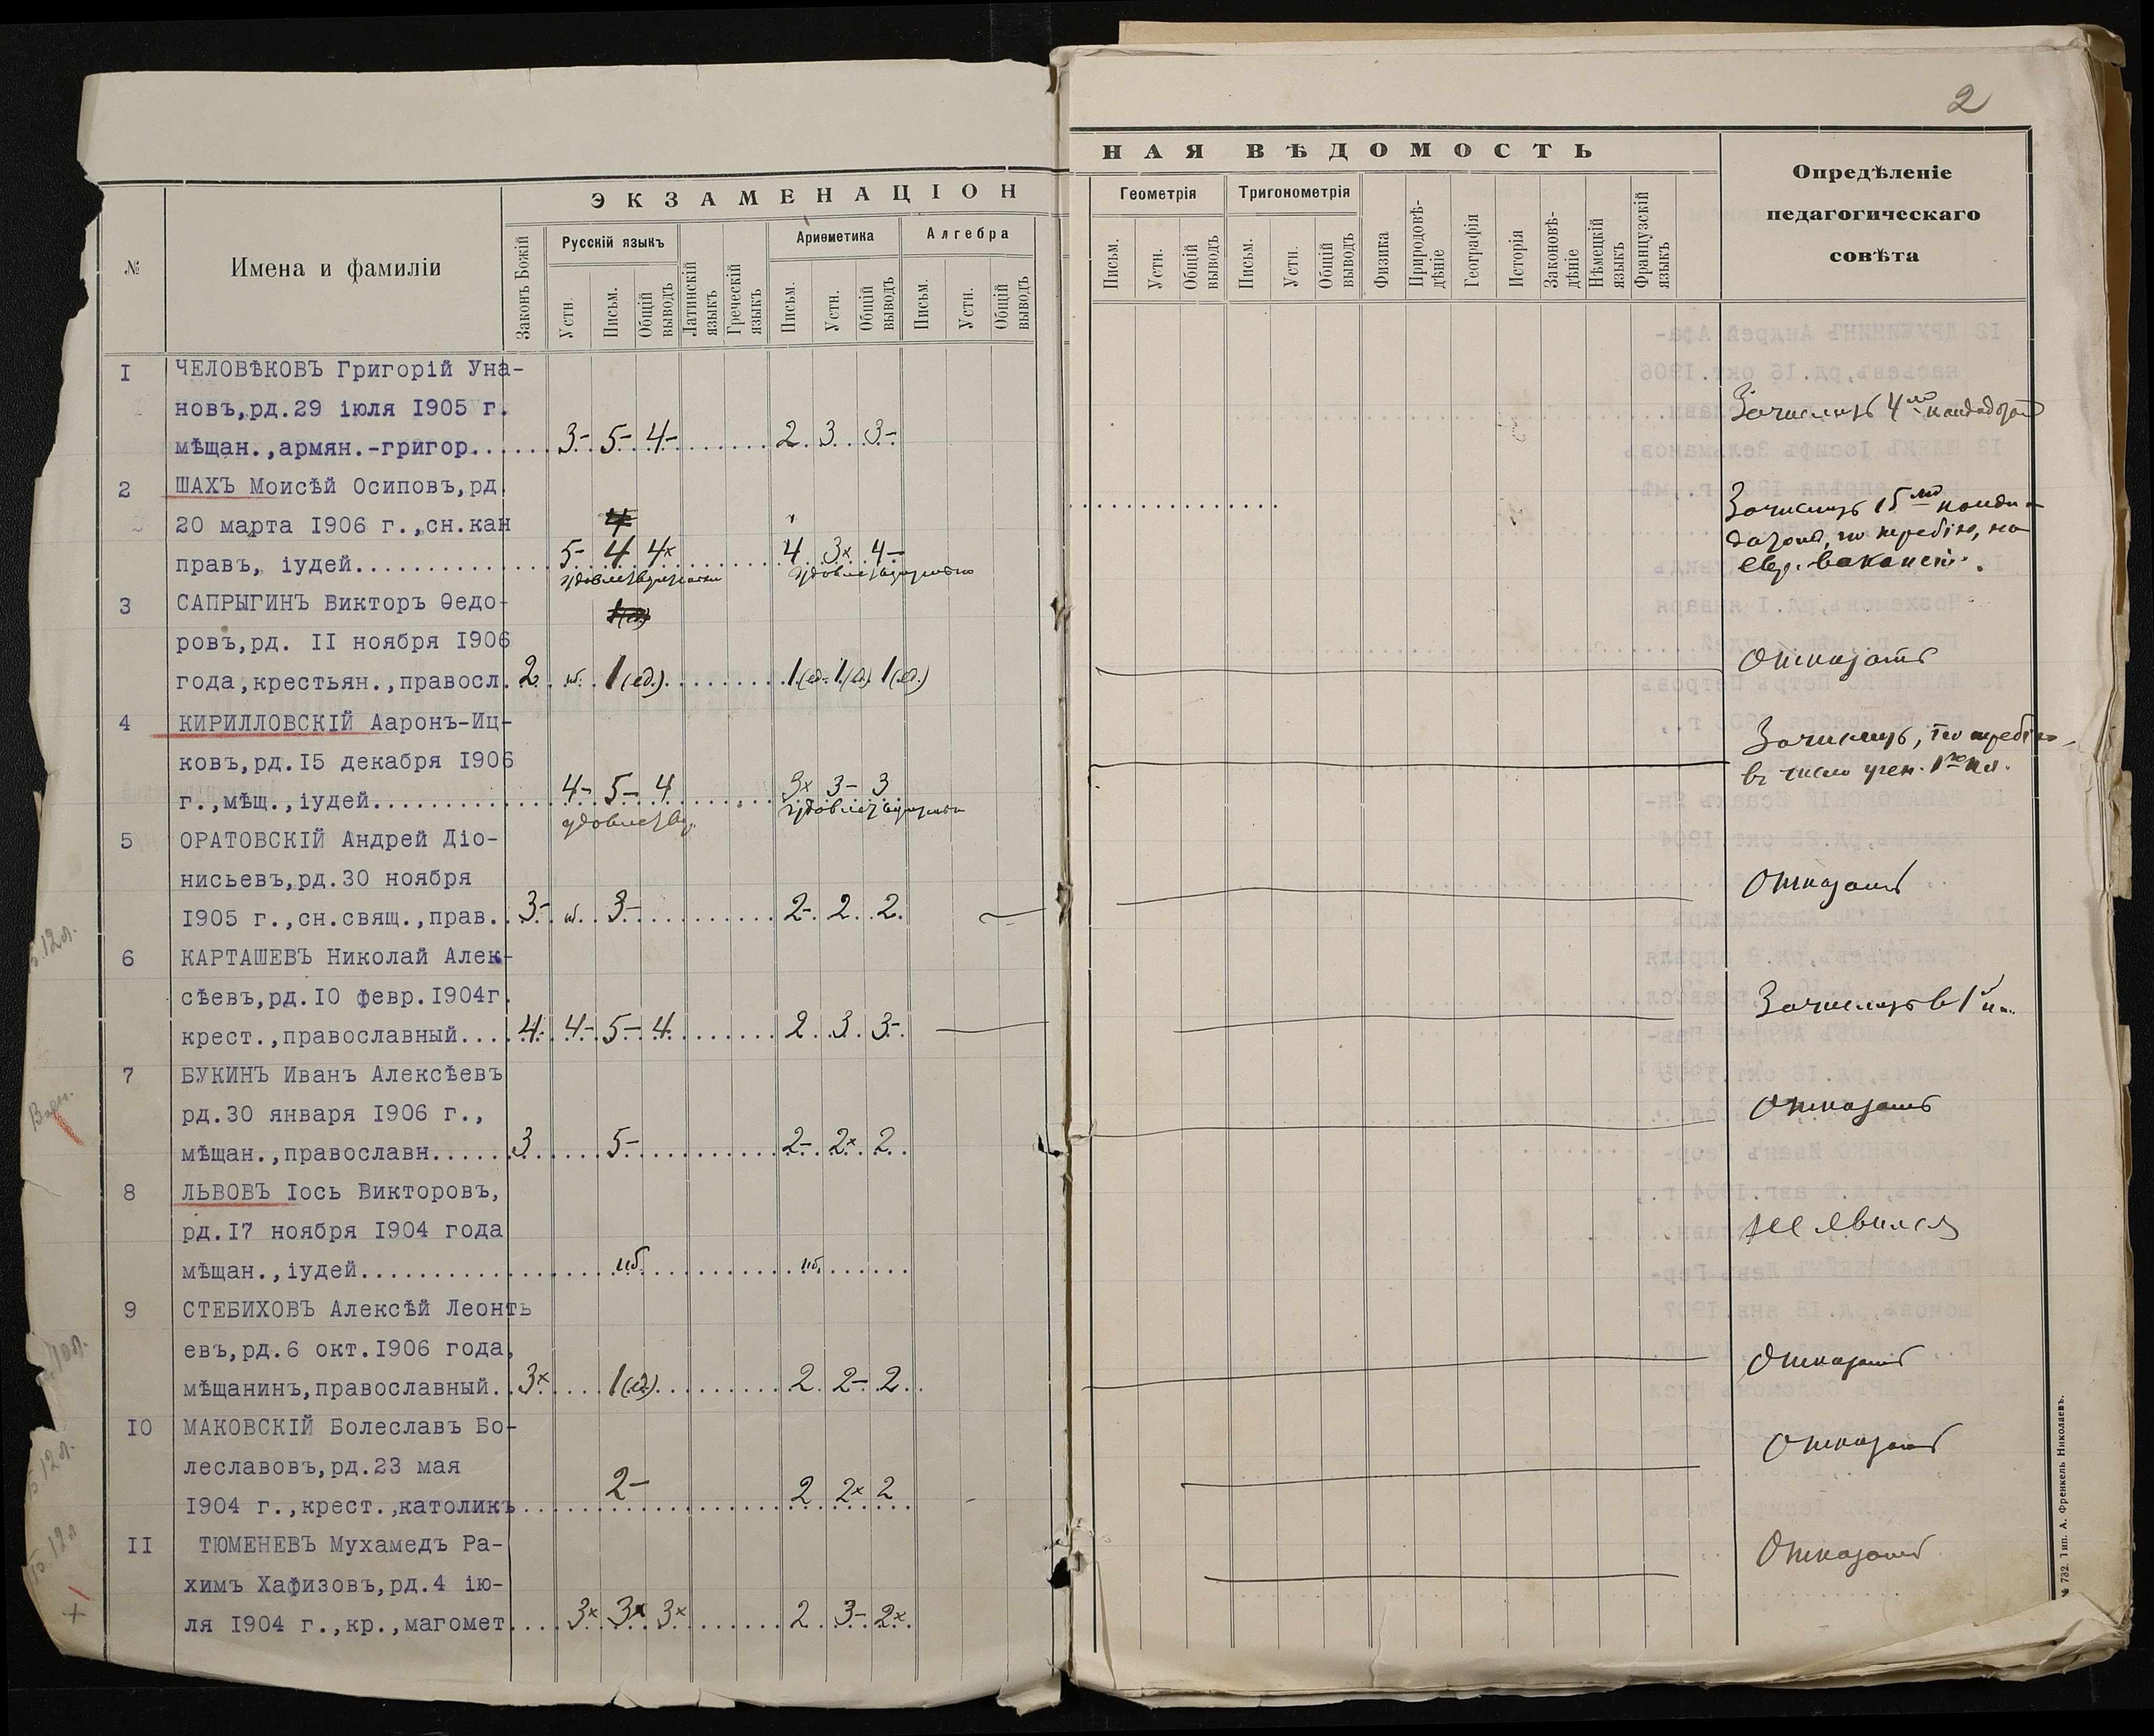 2
ЭКЗАМЕНАЦІОН
НАЯ ВѢДОМОСТЬ
№
Имена и фамиліи
Законъ Божій
Русскій языкъ
Устн.
Письм.
Общій выводъ
Латинскій языкъ
Греческій языкъ
Ариѳметика
Письм.
Устн.
Общій выводъ
Алгебра
Письм.
Устн.
Общій выводъ
Геометрія
Письм.
Устн.
Общій выводъ
Тригонометрія
Письм.
Устн.
Общій выводъ
Физика
Природовѣ-
дѣніе
Географія
Исторія
Законовѣ-
дѣніе
Нѣмецкій языкъ
Французскій языкъ
Опредѣленіе
педагогическаго
совѣта
I ЧЕЛОВѢКОВЪ Григорій Уна-
новъ,рд.29 іюля I905 г.
мѣщан.,армян.-григор. 3- 5- 4- 2 3 3-
Зачислить 4мъ кандидатомъ
2 ШАХЪ Моисѣй Осиповъ,рд.
20 марта I906 г.,сн.кан 4
правъ, іудей 5- 4 4× 4 3× 4-
удовлетворительно удовлетворительно
Зачислить 15мъ канди-
датомъ, по жребію, на
евр. ваканси.
3 САПРЫГИНЪ Викторъ Ѳедо- 1(ед)
ровъ,рд. II ноября I906
года,крестьян.,правосл. 2 нб. 1(ед.) 1(ед. 1(ед) 1(ед.)
Отказать
4 КИРИЛЛОВСКІЙ Ааронъ-Иц-
ковъ,рд.I5 декабря I906
г.,мѣщ.,іудей 4- 5- 4 3× 3- 3
удовлетвор. удовлетворительн
Зачислить, по жребію,
въ число учен. 1го кл.
5 ОРАТОВСКІЙ Андрей Діо-
нисьевъ,рд.30 ноября
I905 г.,сн.свящ.,прав. 3- нб. 3- 2- 2 2
Отказать
6 КАРТАШЕВЪ Николай Алек-
сѣевъ,рд.I0 февр.I904г.
крест.,православный 4 4- 5- 4 2 3 3-
Зачислить в 1й кл.
7 БУКИНЪ Иванъ Алексѣевъ
рд.30 января I906 г.,
мѣщан.,православн. 3 5- 2- 2× 2
Отказать
8 ЛЬВОВЪ Іось Викторовъ,
рд.I7 ноября I904 года
мѣщан.,іудей нб. нб.
Не явился
9 СТЕБИХОВЪ Алексѣй Леонть
евъ,рд.6 окт.I906 года,
мѣщанинъ,православный 3× 1(ед.) 2 2- 2
Отказать
I0 МАКОВСКІЙ Болеславъ Бо-
леславовъ,рд.23 мая
I904 г.,крест.,католикъ 2- 2 2× 2
Отказать
II ТЮМЕНЕВЪ Мухамедъ Ра-
химъ Хафизовъ,рд.4 ію-
ля I904 г.,кр.,магомет 3× 3× 3× 2 3- 2×
Отказать
732. Тип. А. Френкель Николаевъ.